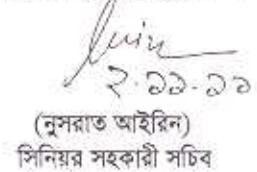 ২.১১.১১
(নুসরাত আইরিন)
সিনিয়র সহকারী সচিব